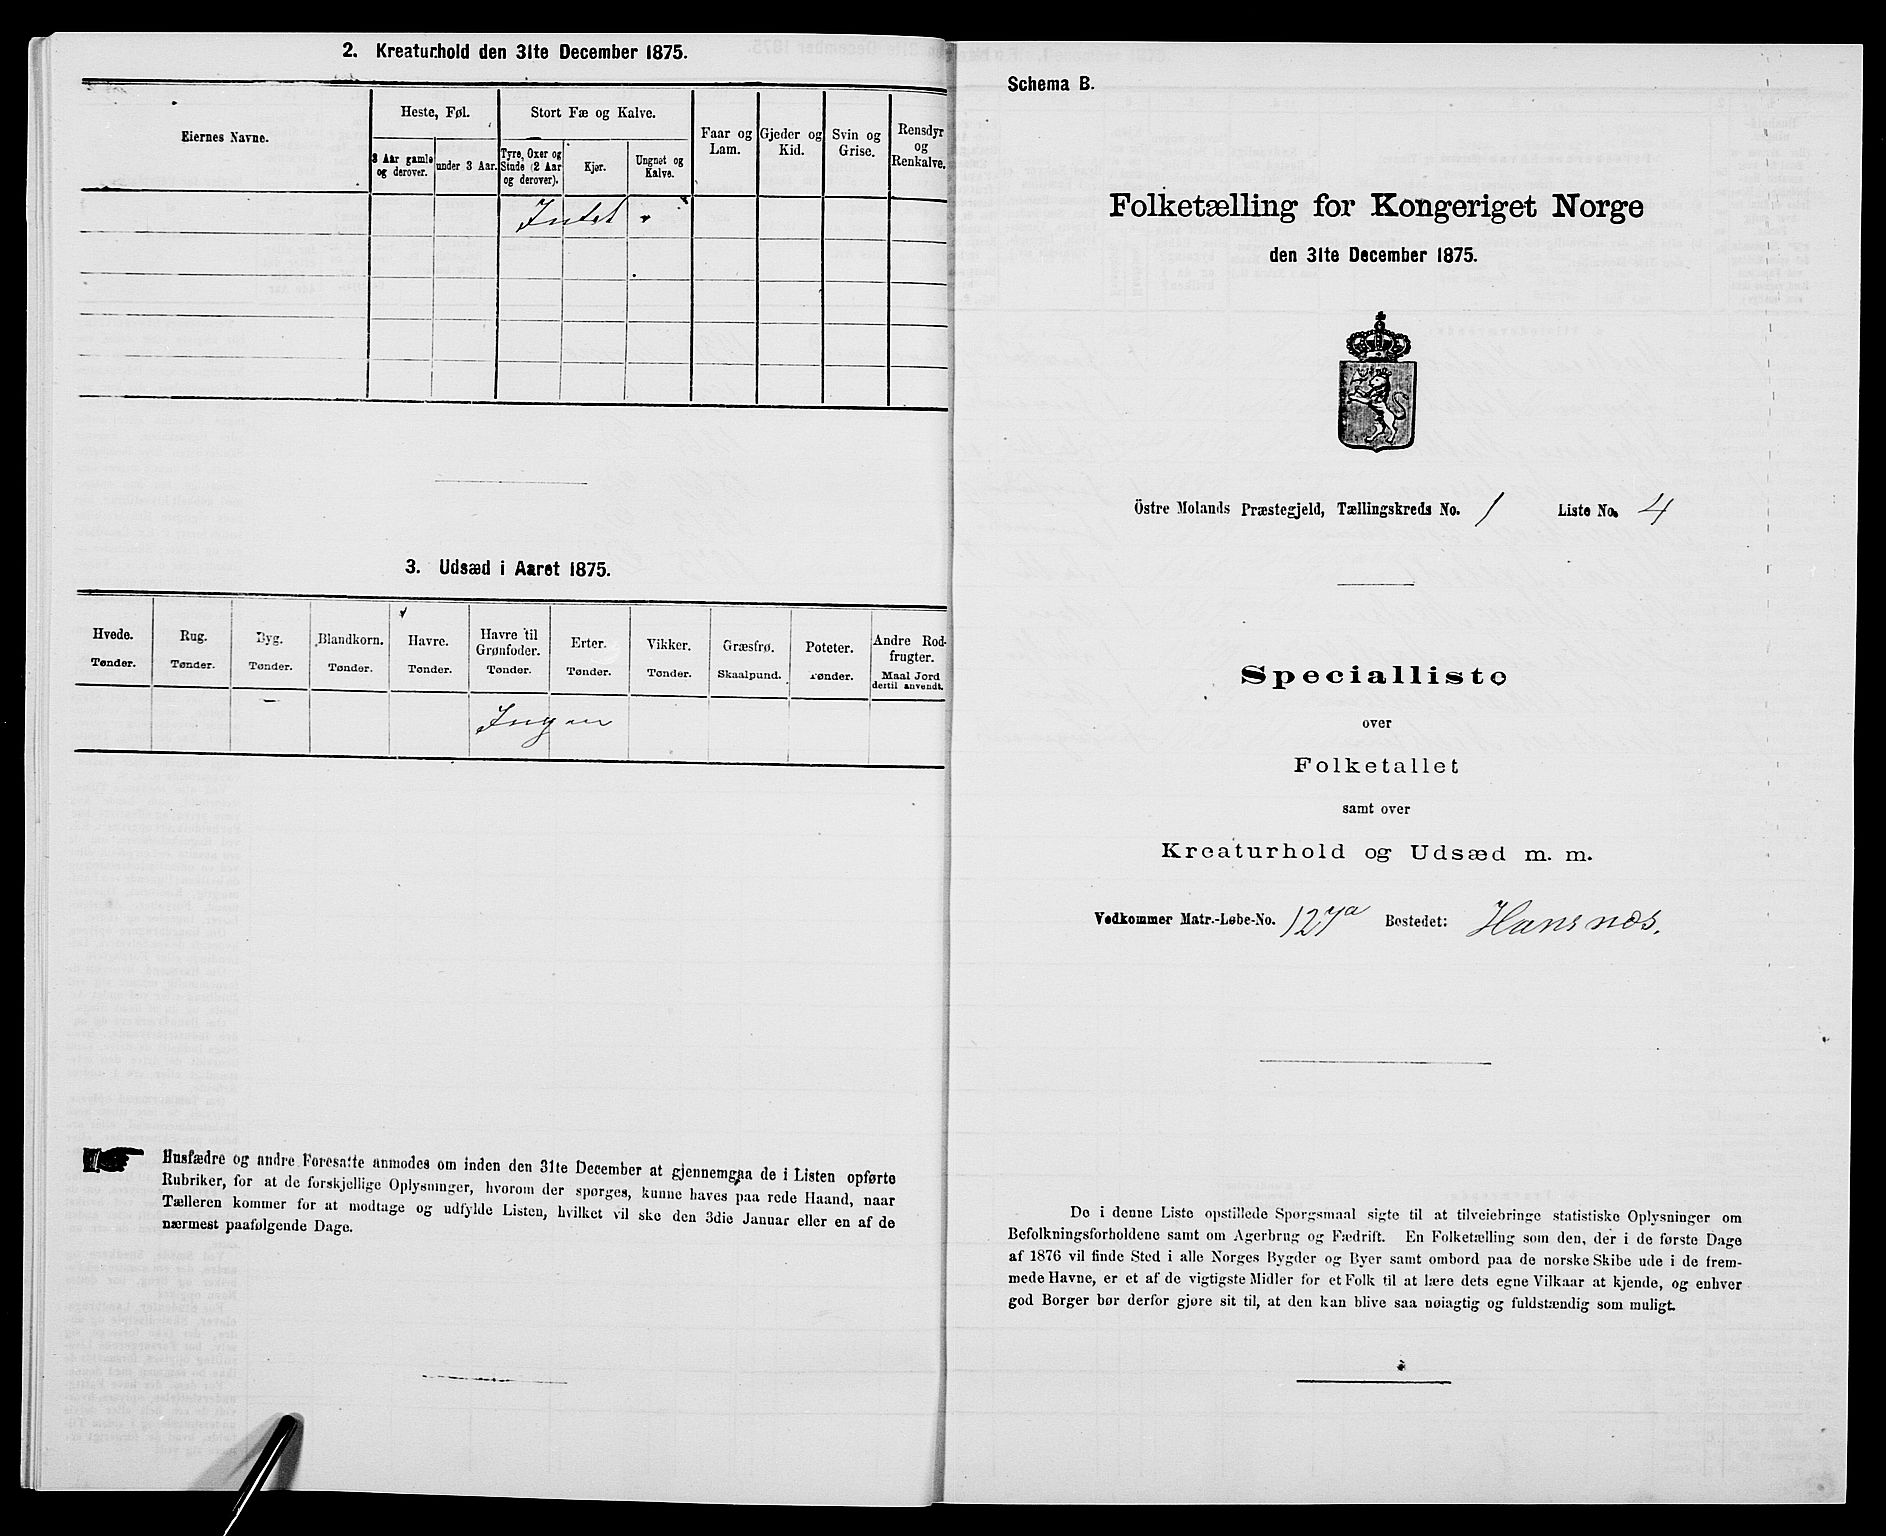 2. Kreaturhold den 31te December 1875.
Eiernes Navne.
Heste, Føl.
Stort Fæ og Kalve.
Faar og
Lam.
Gjeder og
Kid.
Svin og
Grise.
Rensdyr
og
Renkalve.
3 Aar gamle
og derover.
under 3 Aar.
Tyre, Oxer og
Stude (2 Aar
og derover).
Kjør.
Ungnet og
Kalve.
Intet
3. Udsæd i Aaret 1875.
Hvede.
Tønder.
Rug.
Tønder.
Byg.
Tønder.
Blandkorn.
Tønder.
Havre.
Tønder.
Havre til
Grønfoder.
Tønder.
Erter.
Tønder.
Vikker.
Tønder.
Græsfrø.
Skaalpund.
Poteter.
Tønder.
Andre Rod-
frugter.
Maal Jord
dertil anvendt.
Ingen
Husfædre og andre Foresatte anmodes om inden den 31te December at gjennemgaa de i Listen opførte
Rubriker, for at de forskjellige Oplysninger, hvorom der spørges, kunne haves paa rede Haand, naar
Tælleren kommer for at modtage og udfylde Listen, hvilket vil ske den 3die Januar eller en af de
nærmest paafølgende Dage.
Schema B.
Folketælling for Kongeriget Norge
den 31te December 1875.
Östre Molands Præstegjeld, Tællingskreds No. 1 Liste No. 4
Specialliste
over
Folketallet
samt over
Kreaturhold og Udsæd m. m.
Vedkommer Matr.-Løbe-No. 127a Bostedet: Hansnæs.
De i denne Liste opstillede Spørgsmaal sigte til at tilveiebringe statistiske Oplysninger om
Befolkningsforholdene samt om Agerbrug og Fædrift. En Folketælling som den, der i de første Dage
af 1876 vil finde Sted i alle Norges Bygder og Byer samt ombord paa de norske Skibe ude i de frem-
mede Havne, er et af de vigtigste Midler for et Folk til at lære dets egne Vilkaar at kjende, og enhver
god Borger bør derfor gjøre sit til, at den kan blive saa nøiagtig og fuldstændig som muligt.